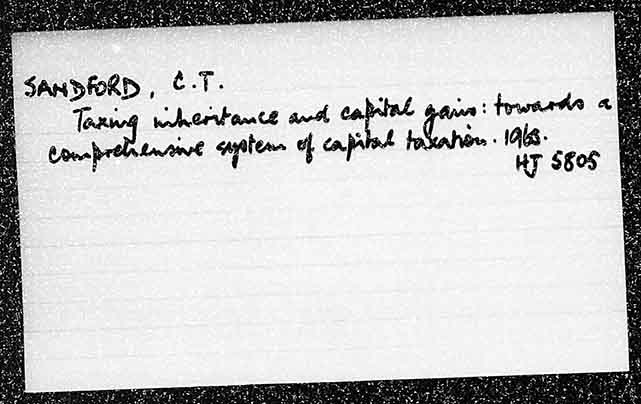 SANDFORD, C.T.
Taxing inheritance and capital gains: towards a
comprehensive system of capital taxation. 1965.
HJ 5805